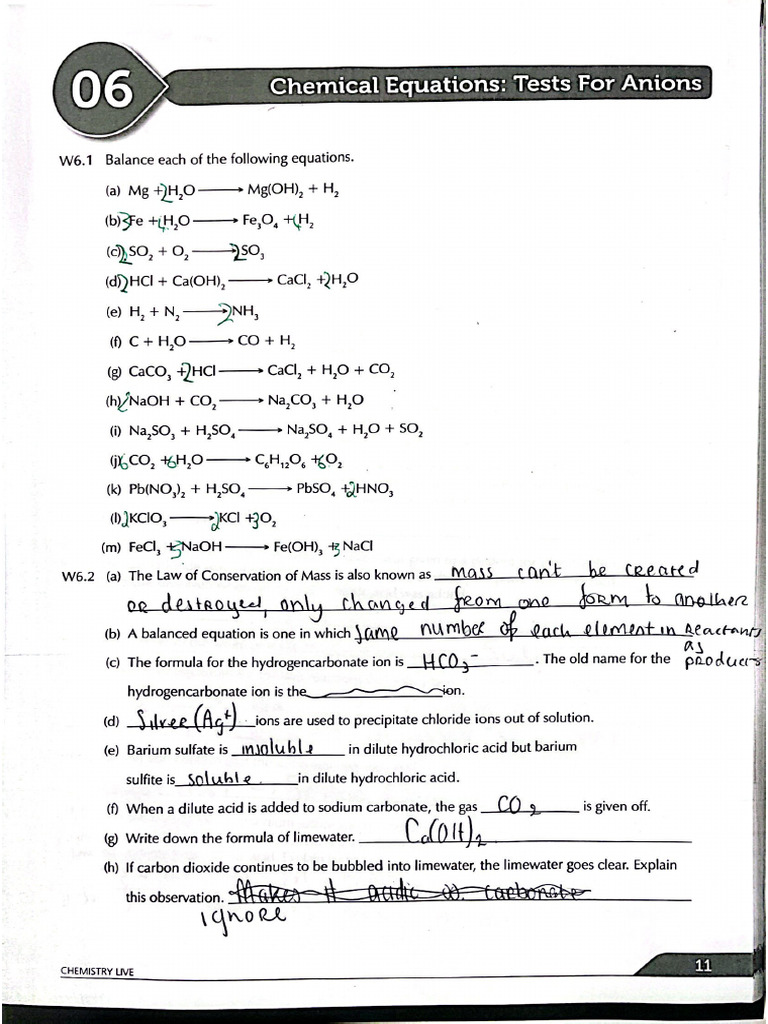 06
Chemical Equations: Tests For Anions
W6.1 Balance each of the following equations.
(a) Mg + 2H₂O ⟶ Mg(OH)₂ + H₂
(b) 3Fe + 4H₂O ⟶ Fe₃O₄ + 4H₂
(c) 2SO₂ + O₂ ⟶ 2SO₃
(d) 2HCl + Ca(OH)₂ ⟶ CaCl₂ + 2H₂O
(e) H₂ + N₂ ⟶ 2NH₃
(f) C + H₂O ⟶ CO + H₂
(g) CaCO₃ + 2HCl ⟶ CaCl₂ + H₂O + CO₂
(h) 2NaOH + CO₂ ⟶ Na₂CO₃ + H₂O
(i) Na₂SO₃ + H₂SO₄ ⟶ Na₂SO₄ + H₂O + SO₂
(j) 6CO₂ + 6H₂O ⟶ C₆H₁₂O₆ + 6O₂
(k) Pb(NO₃)₂ + H₂SO₄ ⟶ PbSO₄ + 2HNO₃
(l) 2KClO₃ ⟶ 2KCl + 3O₂
(m) FeCl₃ + 3NaOH ⟶ Fe(OH)₃ + 3NaCl
W6.2 (a) The Law of Conservation of Mass is also known as mass can't be created
or destroyed, only changed from one form to another
(b) A balanced equation is one in which same number of each element in reactants
as
(c) The formula for the hydrogencarbonate ion is HCO₃⁻. The old name for the products
hydrogencarbonate ion is the ion.
(d) Silver (Ag⁺) ions are used to precipitate chloride ions out of solution.
(e) Barium sulfate is insoluble in dilute hydrochloric acid but barium
sulfite is soluble in dilute hydrochloric acid.
(f) When a dilute acid is added to sodium carbonate, the gas CO₂ is given off.
(g) Write down the formula of limewater. Ca(OH)₂
(h) If carbon dioxide continues to be bubbled into limewater, the limewater goes clear. Explain
this observation. Makes it acidic carbonate
ignore
CHEMISTRY LIVE
11